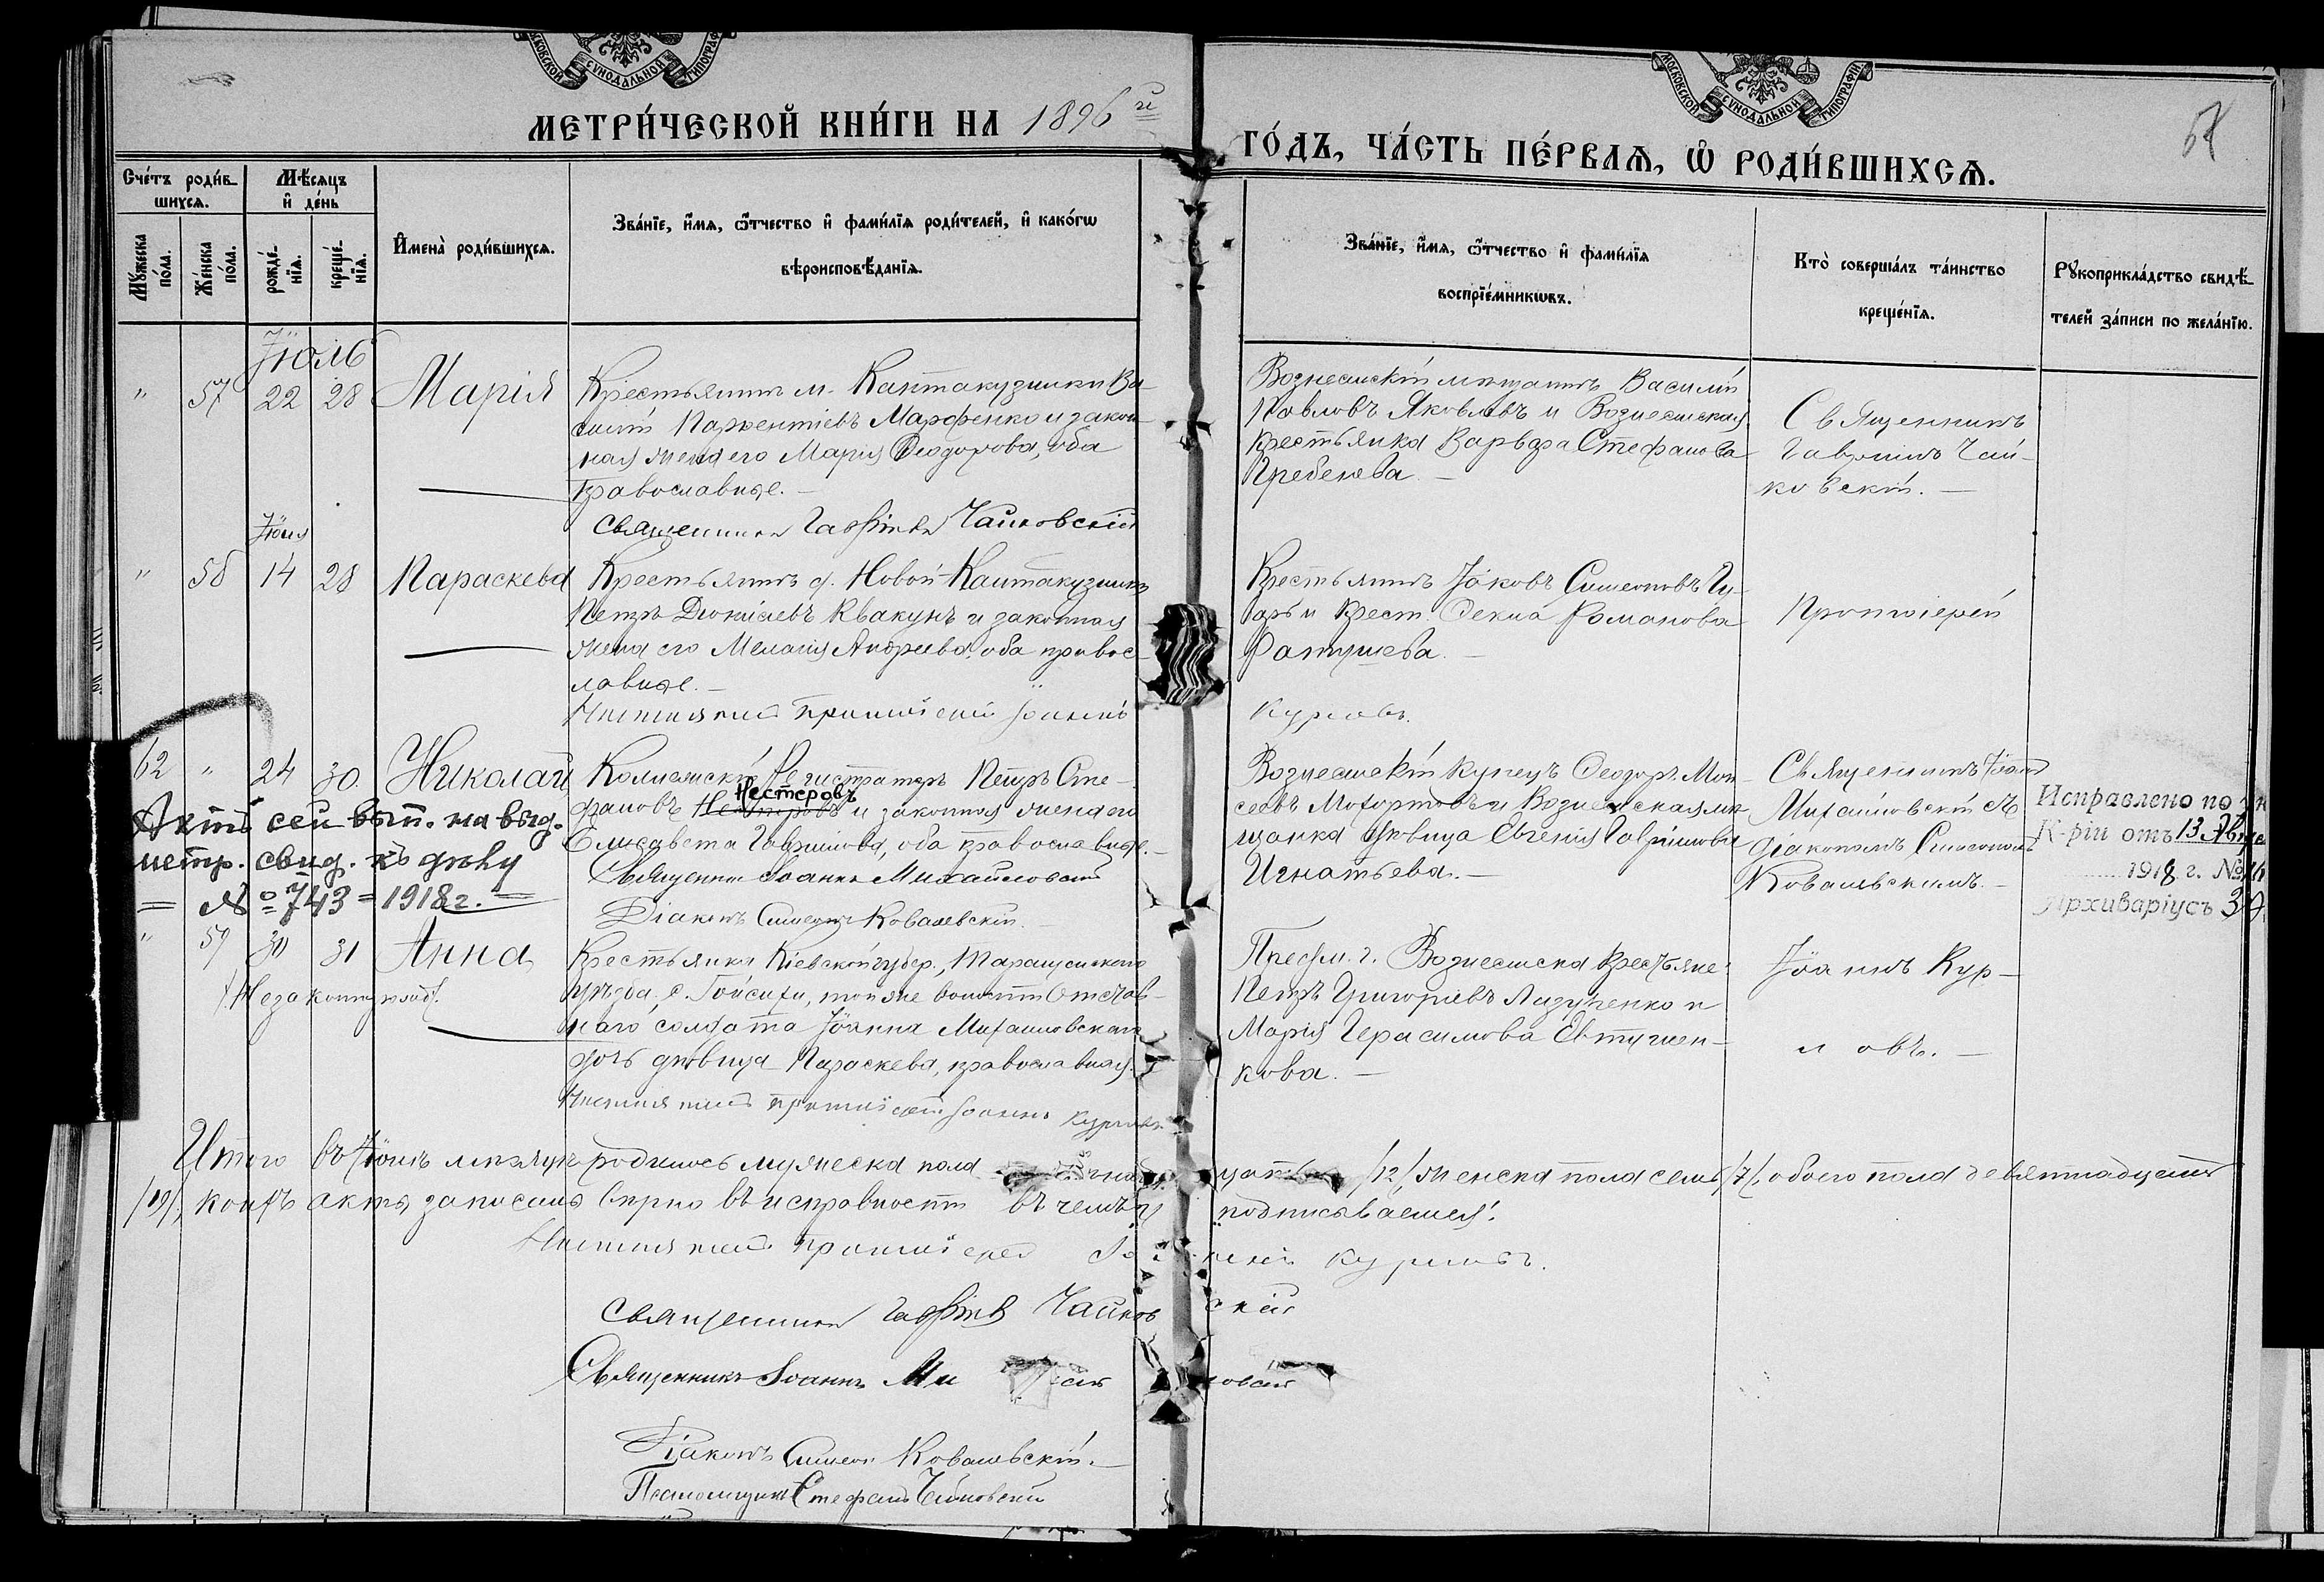 МОСКОВСКОЙ СУНОДАЛЬНОЙ ТИПОГРАФІИ
МОСКОВСКОЙ СУНОДАЛЬНОЙ ТИПОГРАФІИ
МЕТРИ́ЧЕСКОЙ КНИ́ГИ НА 1896 й
ГО́ДЪ, ЧА́СТЬ ПЕ́РВАѦ, Ѡ РОДИ́ВШИХСѦ.
Сче́тъ роди́в-
шихсѧ.
Мѣ́сѧцъ
и҆ де́нь
Мꙋ́жеска по́ла.
Же́нска по́ла.
рожде́-нїѧ.
креще́-нїѧ.
И҆мена̀ роди́вшихсѧ.
Зва́нїе, и҆́мѧ, ѻ҆́тчество и҆ фами́лїѧ роди́телей, и҆ како́гѡ
вѣроисповѣ́данїѧ.
Зва́нїе, и҆́мѧ, ѻ҆́тчество и҆ фами́лїѧ
воспрїе́мникѡвъ.
Кто̀ соверша́лъ та́инство
креще́нїѧ.
Рꙋкоприкла́дство свидѣ́-
телей за́писи по жела́нїю.
Іюль
" 57 22 28 Марія
Крестьянинъ м. Кантакузинки Ва-
силій Парѳентіевъ Марфенко и закон-
ная жена его Марія Ѳеодорова, оба
православные.
Священникъ Гавріилъ Чайковскій
Вознесенскій мѣщанинъ Василій
Павловъ Яковлевъ и Вознесенская
крестьянка Варвара Стефанова
Гребенева.
Священникъ
Гавріилъ Чай-
ковскій.
Іюня
" 58 14 28 Параскева
Крестьянинъ д. Новой-Кантакузинки
Петръ Діонисіевъ Квакунъ и законная
жена его Меланія Андреева, оба правос-
лавные.
Настоятель протоіерей Іоаннъ
Курловъ.
Крестьянинъ Іаковъ Симеоновъ
и крест. Ѳекла Романова
Протоіерей
62 " 24 30. Николай
Коллежскій Регистраторъ Петръ Сте-
Нестеровъ
фановъ и законная жена его
Елисавета Гавриилова, оба православные.
Священникъ Іоаннъ Михайловскій
Діаконъ Симеонъ Ковалевскій.
Вознесенскій купецъ Ѳеодоръ Мои-
сеевъ Мохортовъ и Вознесенская мѣ-
щанка дѣвица Евгенія Гавріилова
Игнатьева.
Священникъ Іоаннъ
Михайловскій съ
діакономъ Симеономъ
Ковалевскимъ.
Актъ сей вып. на выд.
метр. свид. къ дѣлу
№ 743 = 1918 г.
Исправлено по
К-ріи отъ 13
1918 г. №
Архиваріусъ
" 59 30 31 Анна
/Незаконнорожд./
Крестьянка Кіевской губер., Таращанскаго
уѣзда, с. , той же волости Отстав-
наго солдата Іоанна Михайловскаго
дочь дѣвица Параскева, православная.
Настоятель протоіерей Іоаннъ Курловъ
г. Вознесенска крестьяне:
Петръ Григорьевъ и
Марія Герасимова Евтушен-
кова.
Іоаннъ Кур-
ловъ.
Итого въ Іюлѣ мѣсяцѣ родилось мужеска пола /12/, женска пола семь /7/, обоего пола девятнадцать
/19/, коихъ акты записаны вѣрно въ исправности въ чемъ и подписываемся:
Настоятель протоіерей Іоаннъ Курловъ.
Священникъ Гавріилъ Чайковскій
Священникъ Іоаннъ
Діаконъ Симеонъ Ковалевскій.
Псаломщикъ Стефанъ